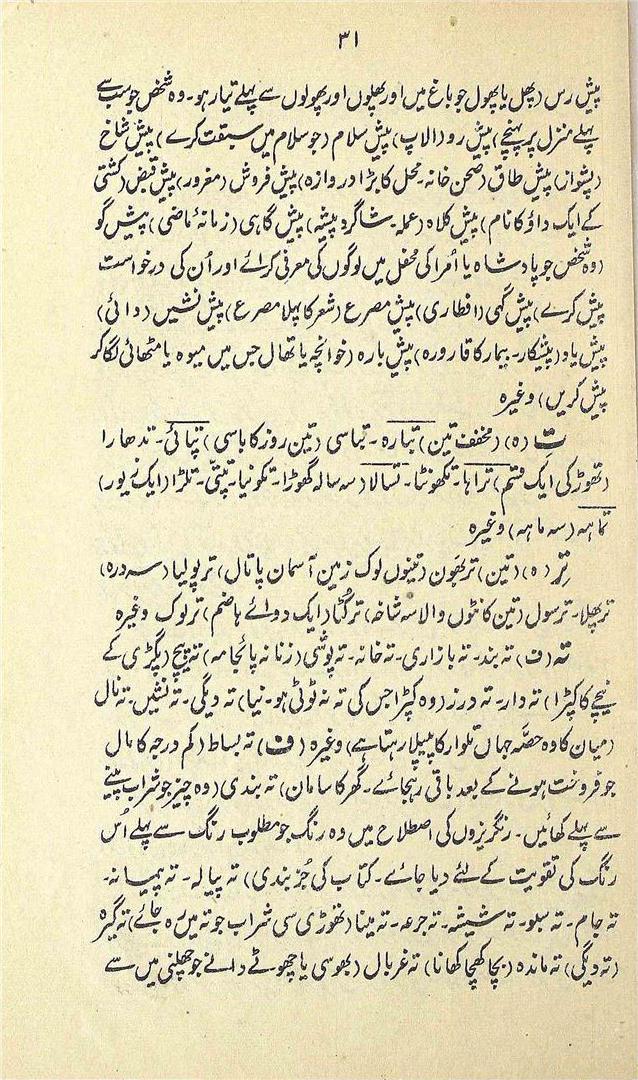 ۳۱
پیش رس (پھل یا پھول جو باغ میں اور پھلوں اور پھولوں سے پہلے تیار ہو۔ وہ شخص جو سب سے
پہلے منزل پر پہنچے) پیش رو (الاپ) پیش سلام (جو سلام میں سبقت کرے) پیش شاخ
(پشواز) پیش طاق (صحن خانہ۔ محل کا بڑا دروازہ) پیش فروش (مغرور) پیش قبض (کشتی
کے ایک داؤ کا نام) پیش کلاہ (عملہ۔ شاگرد پیشہ) پیش گاہی (زمانۂ ماضی) پیش گو
(وہ شخص جو پادشاہ یا اُمرا کی محفل میں لوگوں کی معرفی کرائے اور اُن کی درخواست
پیش کرے) پیش گہی (افطاری) پیش مصرع (شعر کا پہلا مصرع) پیش نشیں (دائی)
پیش یاد (پیشکار۔ بیمار کا قارورہ) پیش یارہ (خوانچہ یا تھال جس میں میوہ یا مٹھائی لگا کر
پیش کریں) وغیرہ
تِ (ہ) (مخفف تین) تبارہ۔ تباسی (تین روز کا باسی) تپائی۔ تدھارا
(تھوڑ کی ایک قسم) تراہا۔ تکھونٹا۔ تسالا (سہ سالہ گھوڑا۔ تکونیا۔ تپتی۔ تلڑا (ایک زیور)
تماہہ (سہ ماہہ) وغیرہ
تِر (ہ) (تین) تربھون (تینوں لوک زمین آسمان پاتال) ترپولیا (سہ درہ)
ترپھلا۔ ترسول (تین کانٹوں والا سہ شاخہ) ترکُٹا (ایک دوائے ہاضم) ترلوک وغیرہ
تہ (ف) تہ بند۔ تہ بازاری۔ تہ خانہ۔ تہ پوشی (زنانہ پائجامہ) تہ پیچ (پگڑی کے
نیچے کا کپڑا) تہ دار۔ تہ درز (وہ کپڑا جس کی تہ نہ ٹوٹی ہو۔ نیا) تہ دیگی۔ تہ نشیں۔ تہ نال
(میان کا وہ حصّہ جہاں تلوار کا پیپلا رہتا ہے) وغیرہ (ف) تہ بساط (کم درجہ کا مال
جو فروخت ہونے کے بعد باقی رہجائے۔ گھر کا سامان) تہ بندی (وہ چیز جو شراب پینے
سے پہلے کھائیں۔ رنگریزوں کی اصطلاح میں وہ رنگ جو مطلوب رنگ سے پہلے اُس
رنگ کی تقویت کے لئے دیا جائے۔ کتاب کی جُز بندی) تہ پیالہ۔ تہ پیمانہ۔
تہ جام۔ تہ سبو۔ تہ شیشہ۔ تہ جرعہ۔ تہ مینا (تھوڑی سی شراب جو تہ میں رہ جائے) تہ گیرہ
(تہ دیگی) تہ ماندہ (بچا کھچا کھانا) تہ غربال (بھوسی یا چھوٹے دانے جو چھلنی میں سے